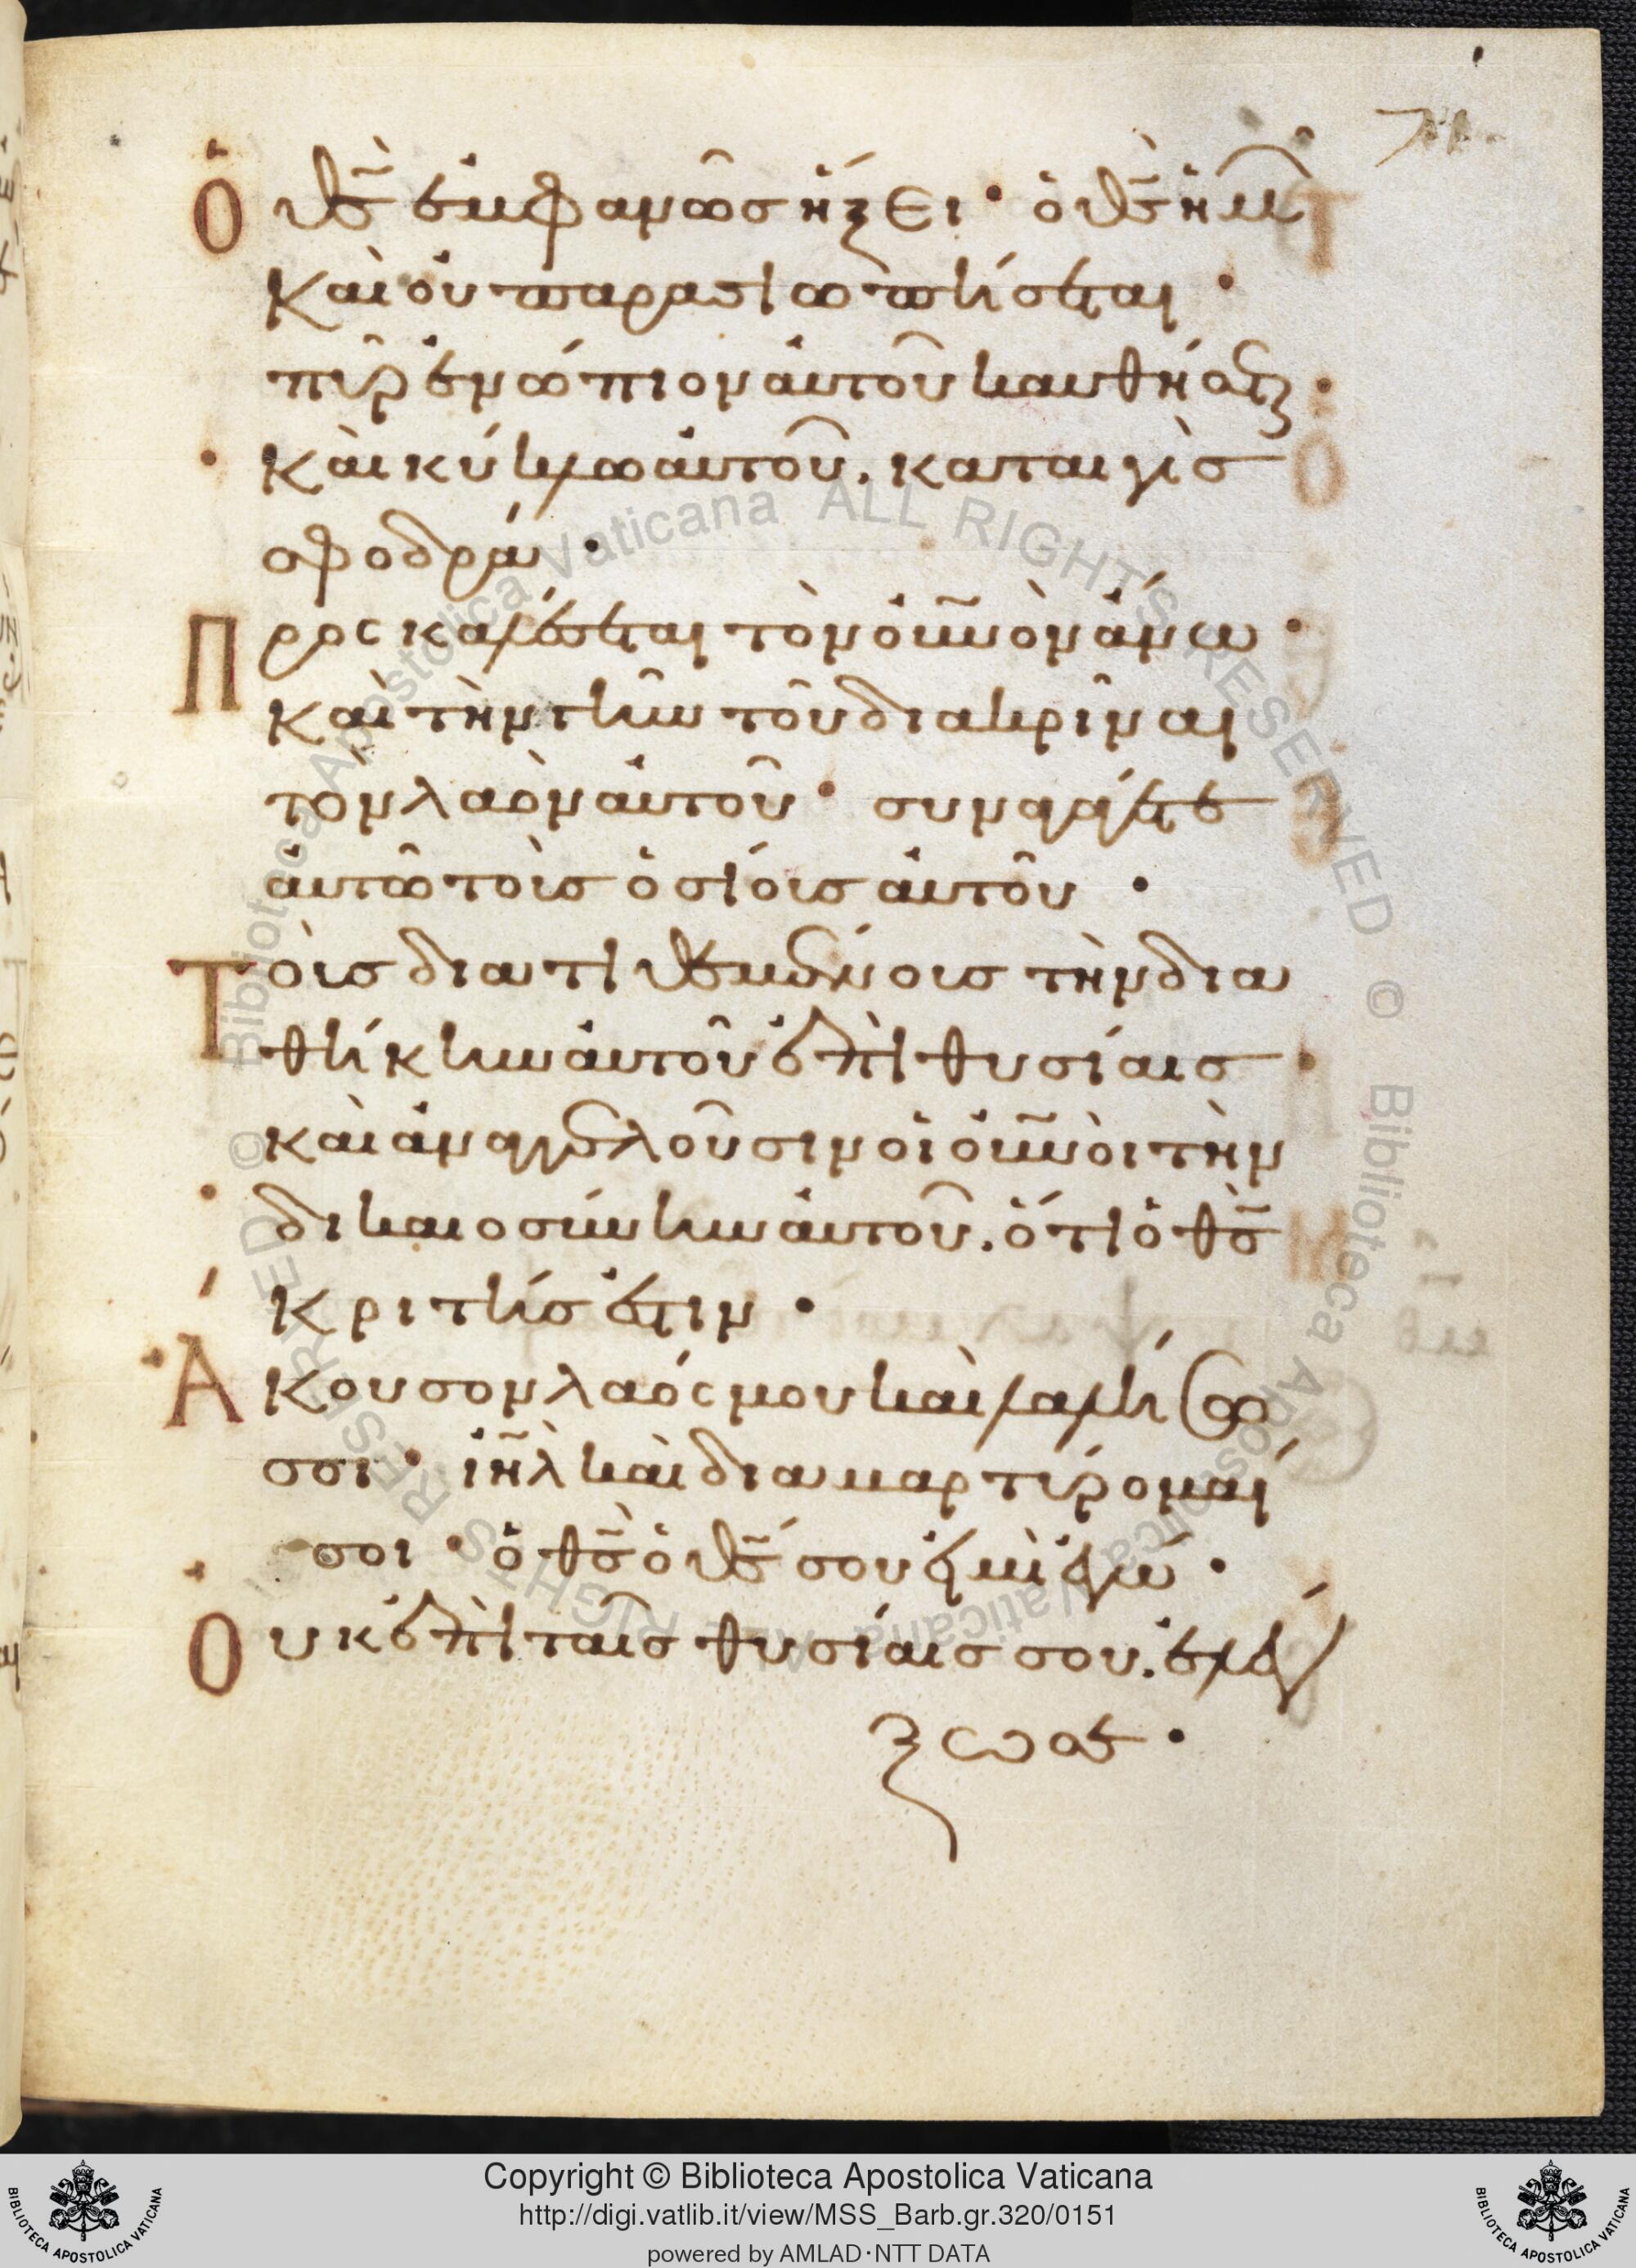 71.
Ὁ θς ἐμφανῶσ ἥξει · ὁ θς ἡμῶ
Καὶ οὐ παρασιωπήσεται ·
πῦρ ἐνώπιον αὐτοῦ καυθήσεται ·
Καὶ κύκλω αὐτοῦ. καταιγὶσ
σφοδρά ·
Προσκαλέσεται τὸν οὐ̅νὸν ἄνω ·
Καὶ τὴν γῆν τοῦ διακρῖναι
τὸν λαὸν αὐτοῦ · συναγάγετε
αὐτῶ τοὺσ ὁσίουσ αὐτοῦ ·
Τοὺσ διατιθεμένουσ τὴν δια
θήκην αὐτοῦ ἐπὶ θυσίαισ ·
καὶ ἀναγγελοῦσιν οἱ οὐ̅νοὶ τὴν
δικαιοσύνην αὐτοῦ. ὅτι ὁ θς
Κριτήσ ἐστιν ·
Ἄκουσον λαός μου καὶ λαλήσω
σοι · ιη̅λ καὶ διαμαρτύρομαί
σοι · ὁ θς ὁ θς σου εἰμὶ ἐγώ ·
Οὐκ ἐπὶ ταῖσ θυσίαισ σου. ἐλέγ
ξω σε ·
Copyright © Biblioteca Apostolica Vaticana
http://digi.vatlib.it/view/MSS_Barb.gr.320/0151
powered by AMLAD·NTT DATA
BIBLIOTECA APOSTOLICA VATICANA
BIBLIOTECA APOSTOLICA VATICANA